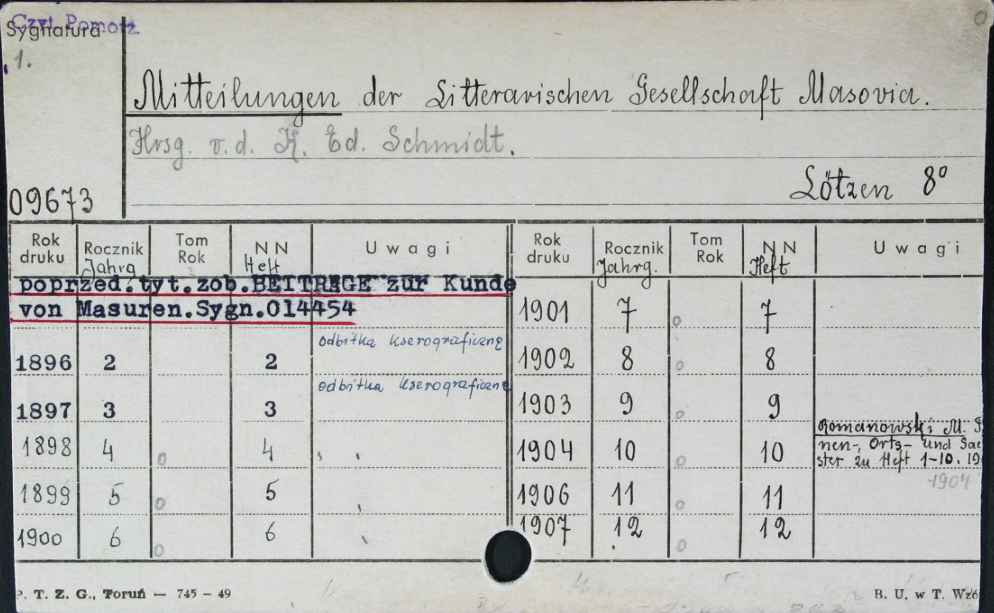 Czyt. Pomoc
Sygnatura
1.
Mitteilungen der Litterarischen Gesellschaft Masovia.
Hrsg. v. d. K. Ed. Schmidt.
Lötzen 8°
09673
Rok druku Rocznik Jahrg. Tom Rok NN Heft Uwagi Rok druku Rocznik Jahrg. Tom Rok NN Heft Uwagi
poprzed.tyt.zob.BEITREGE zur Kunde
von Masuren.Sygn.014454
1896 2 2 odbitka kserograficzne
1897 3 3 odbitka kserograficzne
1898 4 o 4
1899 5 o 5
1900 6 o 6
1901 7 o 7
1902 8 o 8
1903 9 o 9
1904 10 o 10 Romanowski M.
nen-, Orts- und Sac
ster zu Heft 1-10. 19
1904
1906 11 o 11
1907 12 o 12
P. T. Z. G., Toruń — 745 — 49
B. U. w T. Wzó